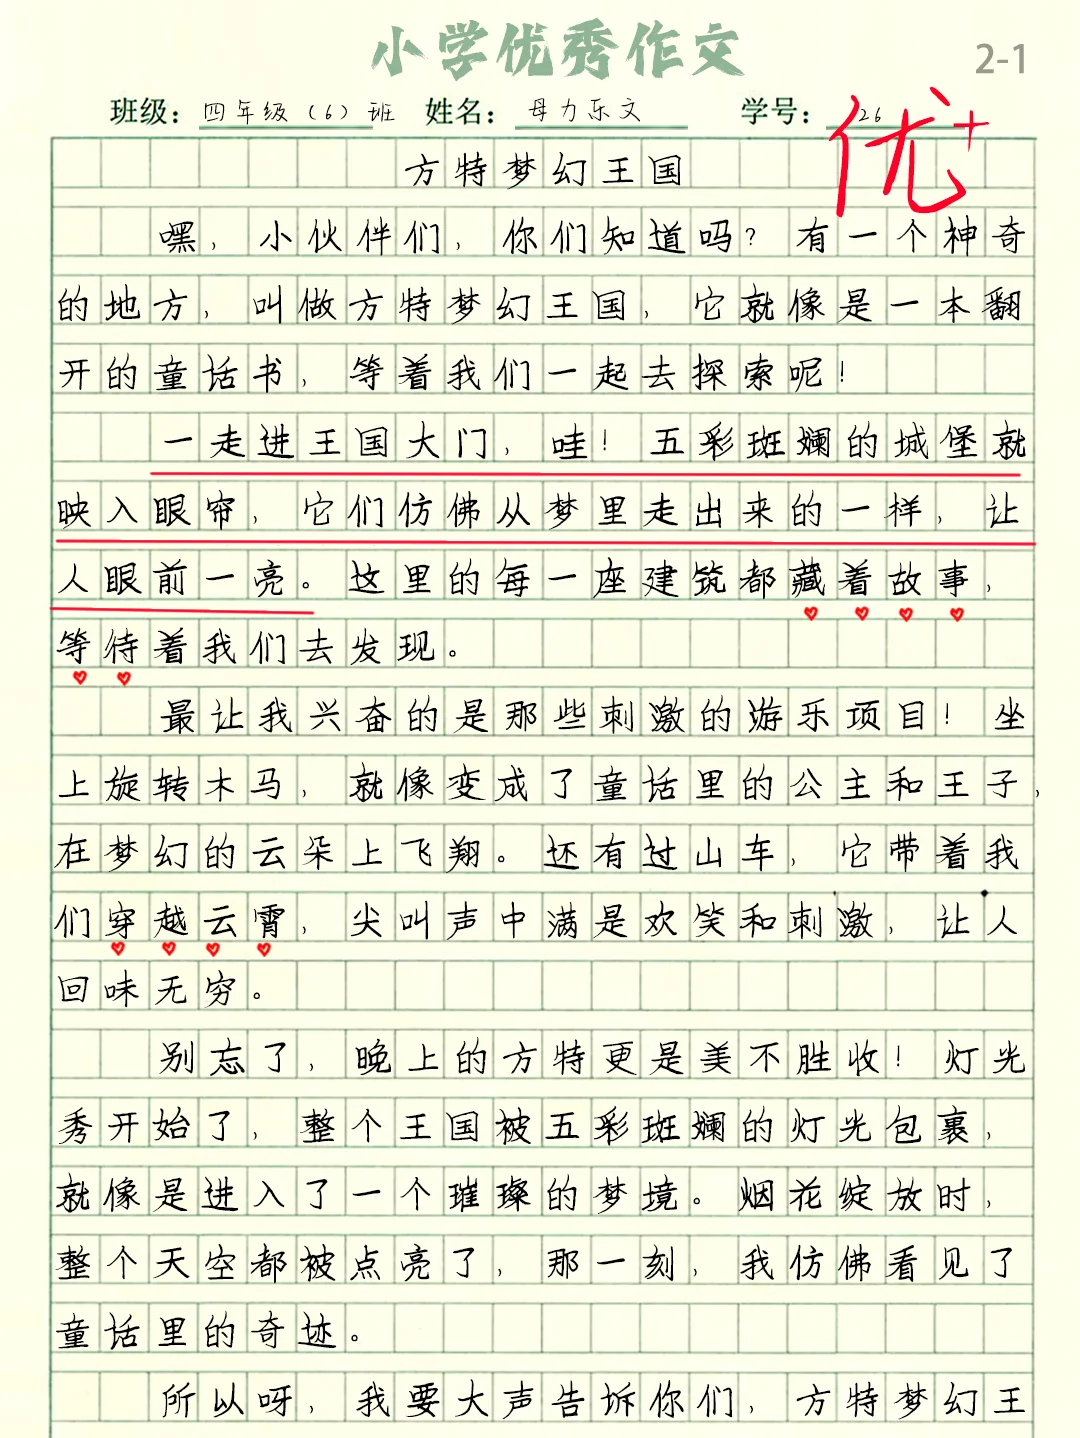 小学优秀作文
2-1
班级：四年级（6）班 姓名：母力乐文 学号：26
优+
方特梦幻王国
嘿，小伙伴们，你们知道吗？有一个神奇
的地方，叫做方特梦幻王国，它就像是一本翻
开的童话书，等着我们一起去探索呢！
一走进王国大门，哇！五彩斑斓的城堡就
映入眼帘，它们仿佛从梦里走出来的一样，让
人眼前一亮。这里的每一座建筑都藏着故事，
等待着我们去发现。
最让我兴奋的是那些刺激的游乐项目！坐
上旋转木马，就像变成了童话里的公主和王子，
在梦幻的云朵上飞翔。还有过山车，它带着我
们穿越云霄，尖叫声中满是欢笑和刺激，让人
回味无穷。
别忘了，晚上的方特更是美不胜收！灯光
秀开始了，整个王国被五彩斑斓的灯光包裹，
就像是进入了一个璀璨的梦境。烟花绽放时，
整个天空都被点亮了，那一刻，我仿佛看见了
童话里的奇迹。
所以呀，我要大声告诉你们，方特梦幻王